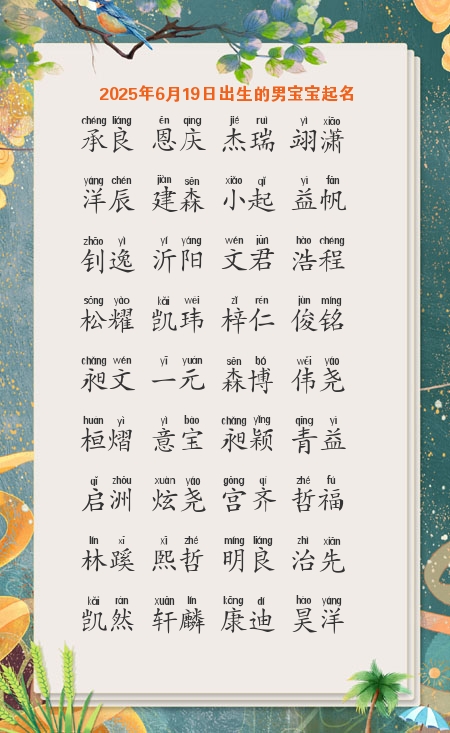 2025年6月19日出生的男宝宝起名
chéng liáng ēn qìng jié ruì yì xiāo
承良 恩庆 杰瑞 翊潇
yáng chén jiàn sēn xiǎo qǐ yì fān
洋辰 建森 小起 益帆
zhāo yì yí yáng wén jūn hào chéng
钊逸 沂阳 文君 浩程
sōng yào kǎi wěi zǐ rén jùn míng
松耀 凯玮 梓仁 俊铭
chǎng wén yī yuán sēn bó wěi yáo
昶文 一元 森博 伟尧
huán yì yì bǎo chǎng yǐng qīng yì
桓熠 意宝 昶颖 青益
qǐ zhōu xuàn yáo gōng qí zhé fú
启洲 炫尧 宫齐 哲福
lín xī xī zhé míng liáng zhì xiān
林蹊 熙哲 明良 治先
kǎi rán xuān lín kāng dí hào yáng
凯然 轩麟 康迪 昊洋